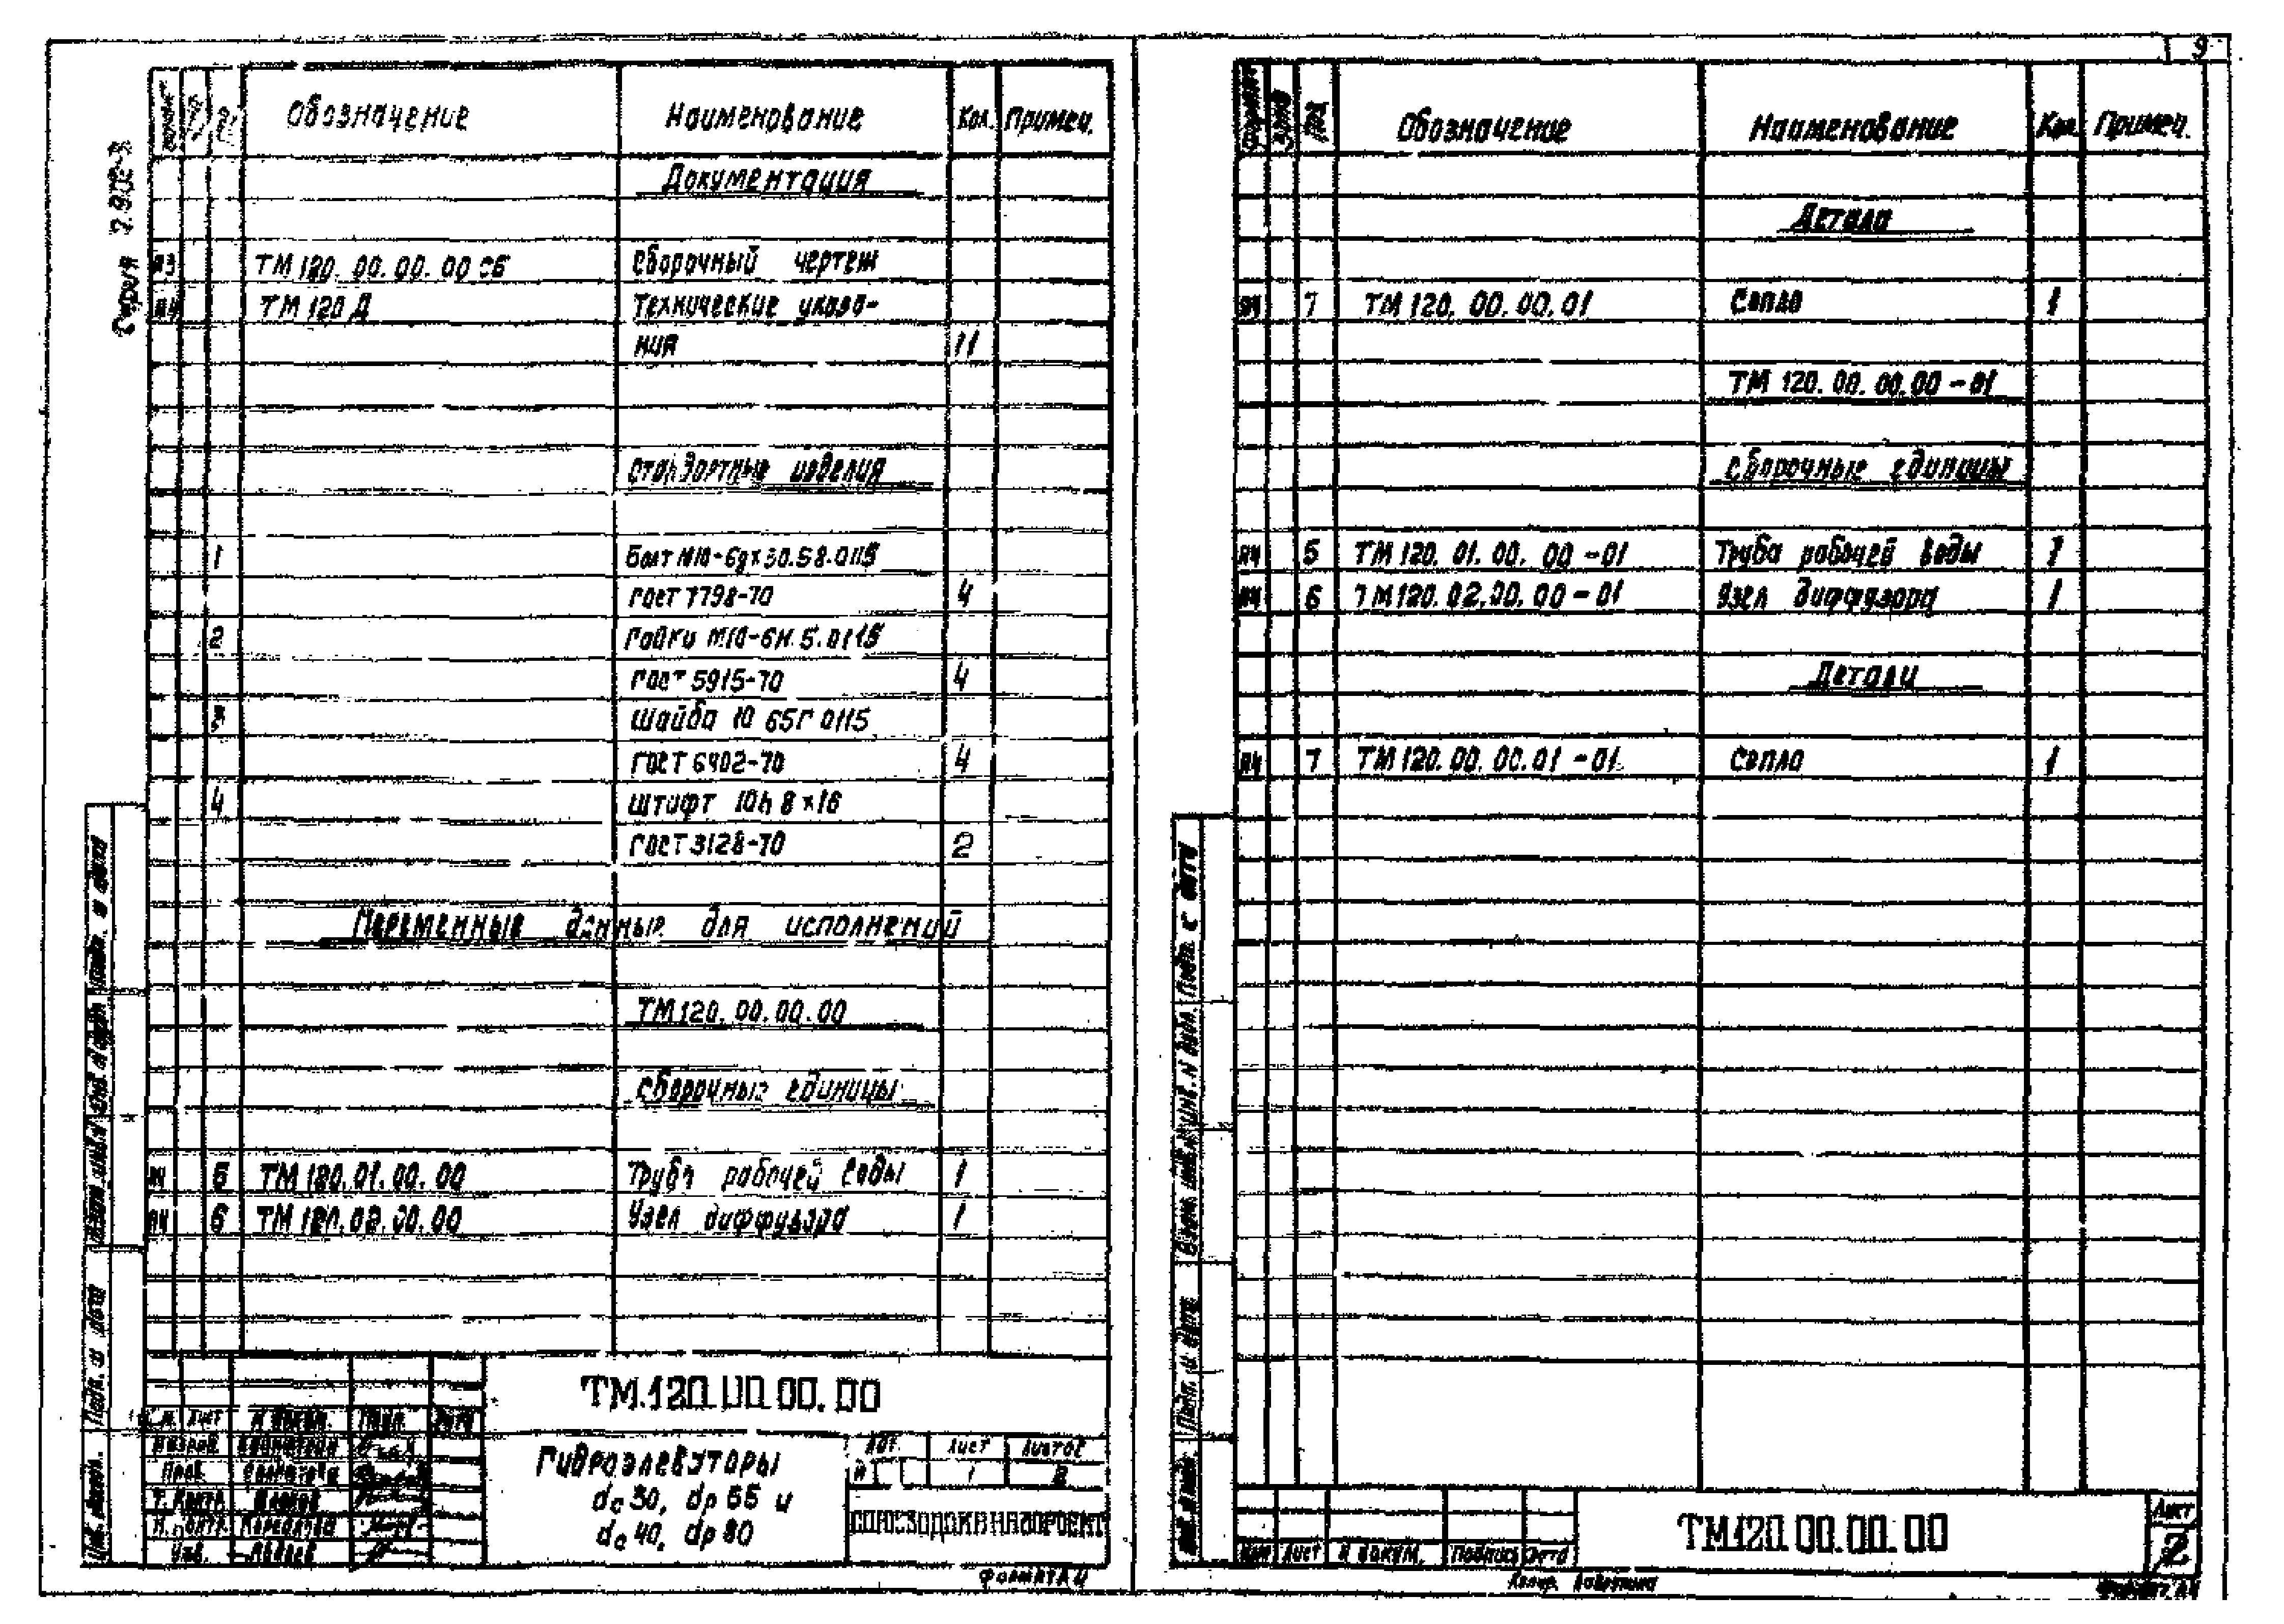 Серия 7.902-3
Обозначение Наименование Кол. Примеч.
Документация
А3 ТМ 120.00.00.00 СБ Сборочный чертеж
А4 ТМ 120 Д Технические указа-
ния 11
Стандартные изделия
1 Болт М10-6gх30.58.0115
ГОСТ 7798-70 4
2 Гайки М10-6Н.5.0115
ГОСТ 5915-70 4
3 Шайба 10 65Г 0115
ГОСТ 6402-70 4
4 Штифт 10h8х16
ГОСТ 3128-70 2
Переменные данные для исполнений
ТМ120.00.00.00
Сборочные единицы
А4 5 ТМ 120.01.00.00 Труба рабочей воды 1
А4 6 ТМ 120.02.00.00 Узел диффузора 1
ТМ.120.00.00.00
Гидроэлеваторы
dс 30, dр 65 и
dс 40, dр 80
Лит. Лист Листов
И 1 2
СОЮЗВОДОКАНАЛПРОЕКТ
Лист № докум.
Разраб.
Пров.
Т. контр.
Н. контр.
Утв.
Формат А4
Инв. № подл. Подп. и дата Взам. инв. № Инв. № дубл. Подп. и дата
9
Формат Зона Поз. Обозначение Наименование Кол. Примеч.
Детали
А4 7 ТМ 120.00.00.01 Сопло 1
ТМ 120.00.00.00-01
Сборочные единицы
А4 5 ТМ 120.01.00.00-01 Труба рабочей воды 1
А4 6 ТМ120.02.00.00-01 Узел диффузора 1
Детали
А4 7 ТМ 120.00.00.01-01 Сопло 1
Подп. и дата Взам. инв. № Инв. № дубл. Подп. и дата
Изм Лист № докум. Подпись Дата
ТМ120.00.00.00
Лист
2
Копир.
Формат А4